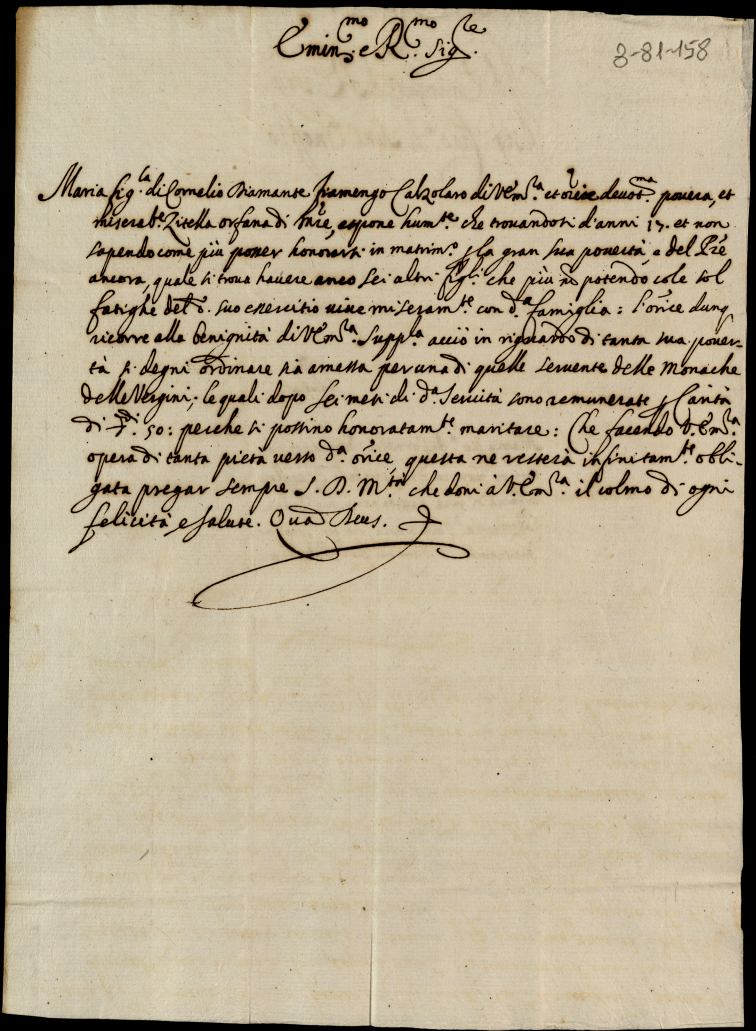 Emin.mo e R.mo Sig.re
3-81-158
Maria fig.la di Cornelio Diamante fiamengo Calzolaro di V. Em.a et or̃ice devot.ma povera, et
miserab.e Zitella orfana di m̃re, espone hum.te che trovandosi d'anni 17. et non
sapendo come più poter honorarsi in matrim.o p la gran sua povertà e del P̃re
ancora, quale si trova havere anco sei altri figli che più ñ potendo cole sol
fatighe del d. suo esercitio vive miseram.te con d.a famiglia: l'or̃ice dunq
ricorre alla benignità di V. Em.a supp.a acciò in riguardo di tanta sua pover-
tà si degni ordinare sia amessa per una di quelle servente delle Monache
delle Vergini; le quali dopo sei mesi di d.a Servità sono remunerate p Carità
di 50: perche si possino honoratam.te maritare: Che facendo V. Em.a
opera di tanta pietà verso d.a or̃ice, questa ne resterà infinitam.te obli-
gata pregar sempre S. D. M.tà che doni à V. Em.a il colmo di ogni
felicità e salute. Quad Deus.